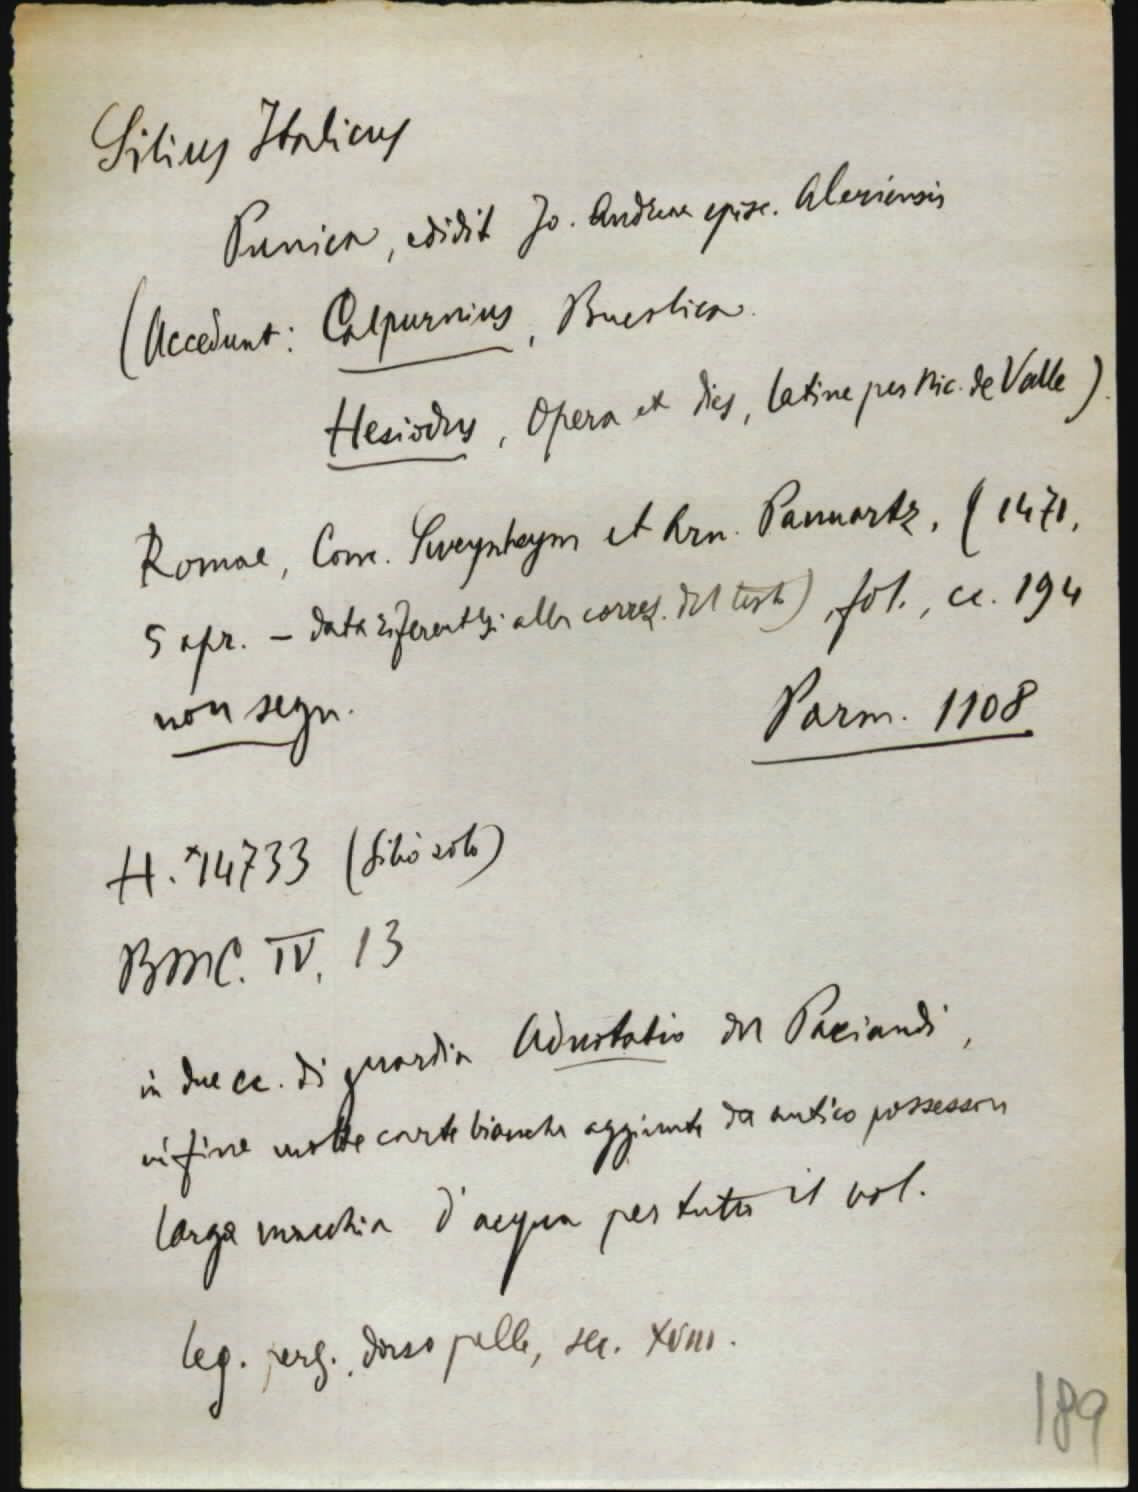 Silius Italicus
Punica, edidit Jo. Andreae episc. Aleriensis
(Accedunt: Calpurnius, Bucolica.
Hesiodus, Opera et dies, latine per Nic. de Valle).
Romae, Conr. Sweynheym et Arn. Pannartz, (1471,
5 apr. - data riferentesi alla correz. del testo), fol., cc. 194
non segn.
Parm. 1108
H. *14733 (Silio solo)
BMC. IV, 13
in due cc. di guardia Adnotatio del Paciaudi,
in fine molte carte bianche aggiunte da antico possessore
larga macchia d'acqua per tutto il vol.
leg. perg., dorso pelle, sec. XVIII.
189